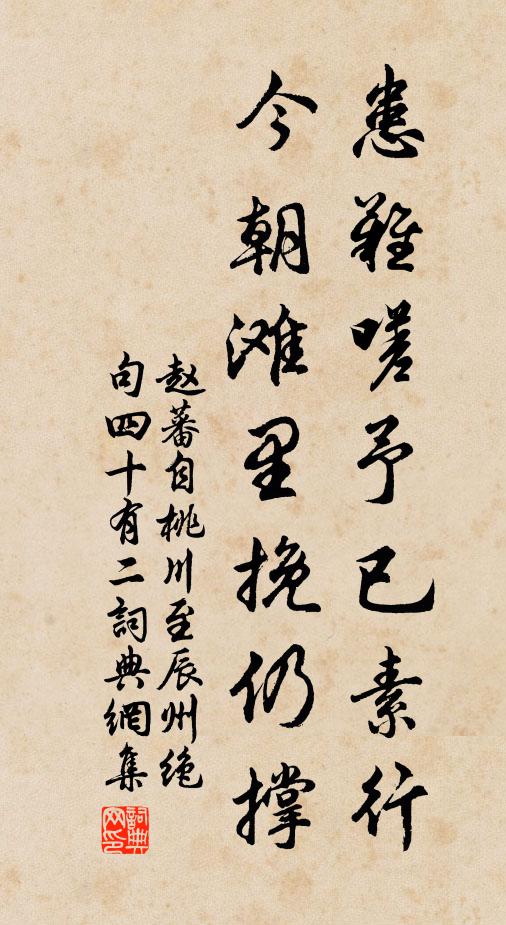 患难嗟予已素行
今朝滩里挽仍撑
赵蕃自桃川至辰州绝
句四十有二詞典網集
詞典网印